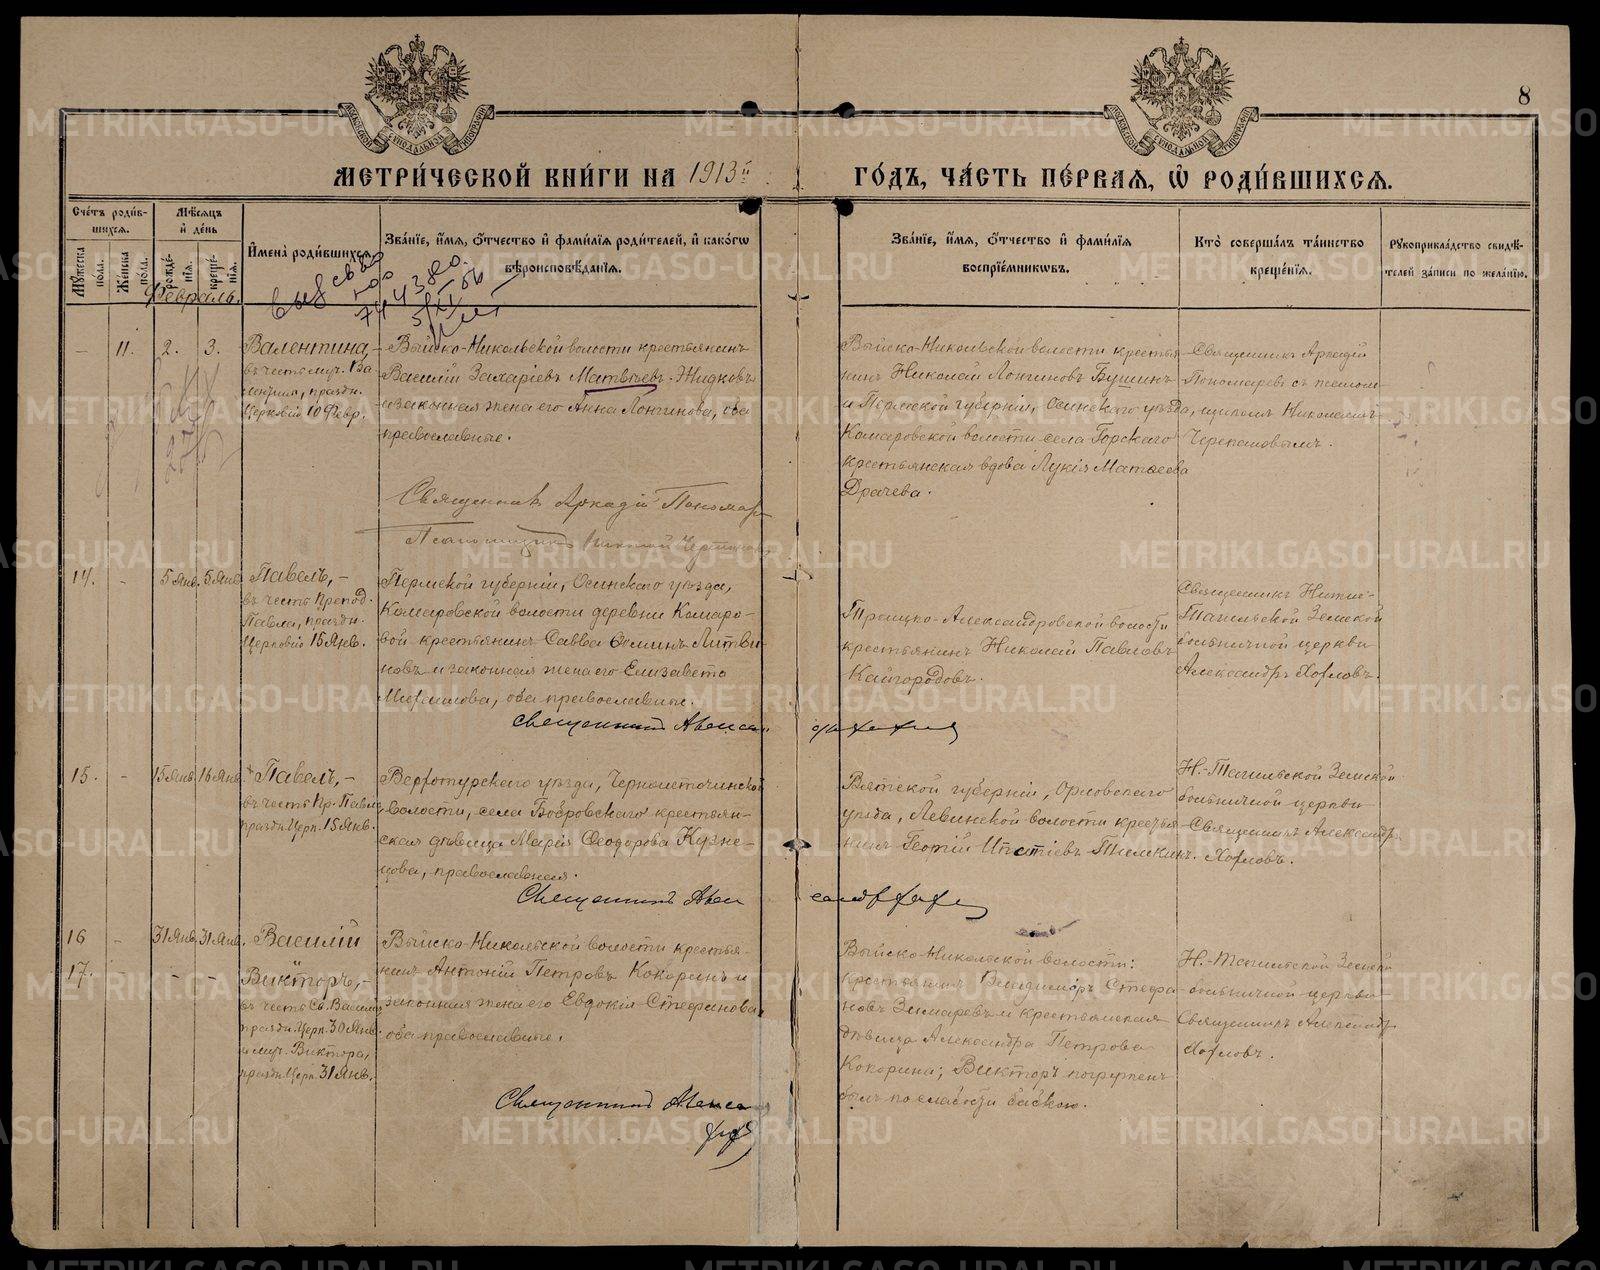 8
МЕТРИ́ЧЕСКОЙ КНИ́ГИ НА 1913й ГО́ДЪ, ЧА́СТЬ ПЕ́РВАЯ, Ѡ РОДИ́ВШИХСЯ.
Сче́тъ роди́вшихся.
Му́жеска по́ла.
Же́нска по́ла.
Мѣ́сяцъ и҆ де́нь
рожде́нїя.
креще́нїя.
И҆мена̀ роди́вшихся.
Зва́нїе, и҆́мя, ѻ҆́тчество и҆ фами́лїя роди́телей, и҆ како́гѡ
вѣроисповѣ́данїя.
Зва́нїе, и҆́мя, ѻ҆́тчество и҆ фами́лїя
воспрїе́мникѡвъ.
Кто̀ соверша́лъ та́инство
креще́нїя.
Рукоприкла́дство свидѣ́-
телей за́писи по жела́нїю.
Февраль.
— 11. 2. 3.
Валентина,-
въ честь муч. Ва
лентина, праздн.
Церковію 10 Февр.
Выйско-Никольской волости крестьянинъ
Василій Захаріевъ Матвѣевъ-Жидковъ
и законная жена его Анна Лонгинова, оба
православные.
Выйско-Никольской волости крестья-
нинъ Николай Лонгиновъ Бушинъ
и Пермской губерніи, Осинскаго уѣзда,
Комаровской волости села Горскаго
крестьянская вдова Лукія Матѳеева
Драчева.
Священникъ Аркадій
Пономаревъ съ псалом-
щикомъ Николаемъ
Черепановымъ.
Священникъ Аркадій Пономар
Псаломщикъ
14. - 5 Янв. 5 Янв.
Павелъ,-
въ честь Препод.
Павла, праздн.
Церковію 15 Янв.
Пермской губерніи, Осинскаго уѣзда,
Комаровской волости деревни Комаро-
вой крестьянинъ Савва Ѳоминъ Литви
новъ и законная жена его Елизавета
оба православные.
Троицко-Александровской волости
крестьянинъ Николай Павловъ
Кайгородовъ.
Священникъ Нижне-
Тагильской Земской
больничной церкви
Александръ Хохловъ.
Священникъ Алексан
15. - 15 Янв. 16 Янв.
Павелъ,-
въ честь Пр. Павла
праздн. Церк. 15 Янв.
Верхотурскаго уѣзда, Черноисточинской
волости, села Бобровскаго крестьян-
ская дѣвица Марія Ѳеодорова Кузне-
цова, православная.
Вятской губерніи, Орловскаго
уѣзда, Левинской волости крестья-
нинъ Георгій Ипатіевъ
Н.-Тагильской Земской
больничной церкви
Священникъ Александръ
Хохловъ.
Священникъ Алек
16 - 31 Янв. 31 Янв.
Василій
17. - - -
Викторъ,-
въ честь Св. Василія
праздн. Церк. 30 Янв.
и муч. Виктора,
праздн. Церк. 31 Янв.
Выйско-Никольской волости крестья-
нинъ Антоній Петровъ Кокоринъ и
законная жена его Евдокія Стефанова,
оба православные.
Выйско-Никольской волости:
крестьянинъ Владиміръ Стефа
новъ Зимаревъ и крестьянская
дѣвица Александра Петрова
Кокорина; Викторъ погруженъ
былъ по слабости бабкою.
Н.-Тагильской Земской
больничной церкви
Священникъ Александръ
Хохловъ.
Священникъ Алекса
METRIKI.GASO-URAL.RU